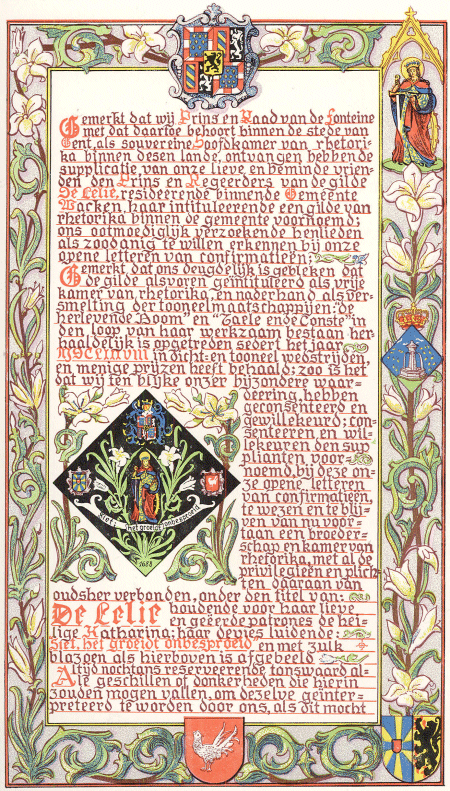 Gemerkt dat wij Prins en Raad van de Fonteine
met dat daartoe behoort binnen de stede van
Gent, als souvereine Hoofdkamer van rhetori-
ka binnen desen lande, ontvangen hebbende
supplicatie van onze lieve en beminde vrien-
den den Prins en Regeerders van de gilde
De Lelie, resideerende binnen de Gemeente
Wacken, haar intituleerende een gilde van
rhetorika binnen de gemeente voornoemd;
ons ootmoediglijk verzoekende henlieden
als zoodanig te willen erkennen bij onze
opene letteren van confirmatieën;
Gemerkt, dat ons deugdelijk is gebleken dat
de gilde alsvoren geïntituleerd als vrije
kamer van rhetorika, en naderhand als ver-
smelting der tooneelmaatschappijen: de
herlevende Boom" en "Taele ende Conste" in
den loop van haar werkzaam bestaan her-
haaldelijk is opgetreden sedert het jaar
in dicht- en tooneel wedstrijden
en menige prijzen heeft behaald: zoo is het
dat wij ten blijke onzer bijzondere waar-
deering, hebben
geconsenteerd en
gewillekeurd; con-
senteeren en wil-
lekeuren den sup-
plianten voor-
noemd, bij deze on-
ze opene letteren
van confirmatieën,
te wezen en te blij-
ven van nu voor-
taan een broeder-
schap en kamer van
rhetorika, met al de
privilegieën en plich-
ten daaraan van
Ziet, het groeidt onbesproeid
1688
oudsher verbonden, onder den titel van:
De Lelie houdende voor haar lieve
en geëerde patrones de hei-
lige Katharina: haar devies luidende:
Ziet, het groeidt onbesproeid, en met zulk
blazoen als hierboven is afgebeeld
Altijd nochtans reserveerende tonswaard al-
le geschillen of donkerheden die hierin
zouden mogen vallen, om dezelve geïnter-
preteerd te worden door ons, als dit mocht